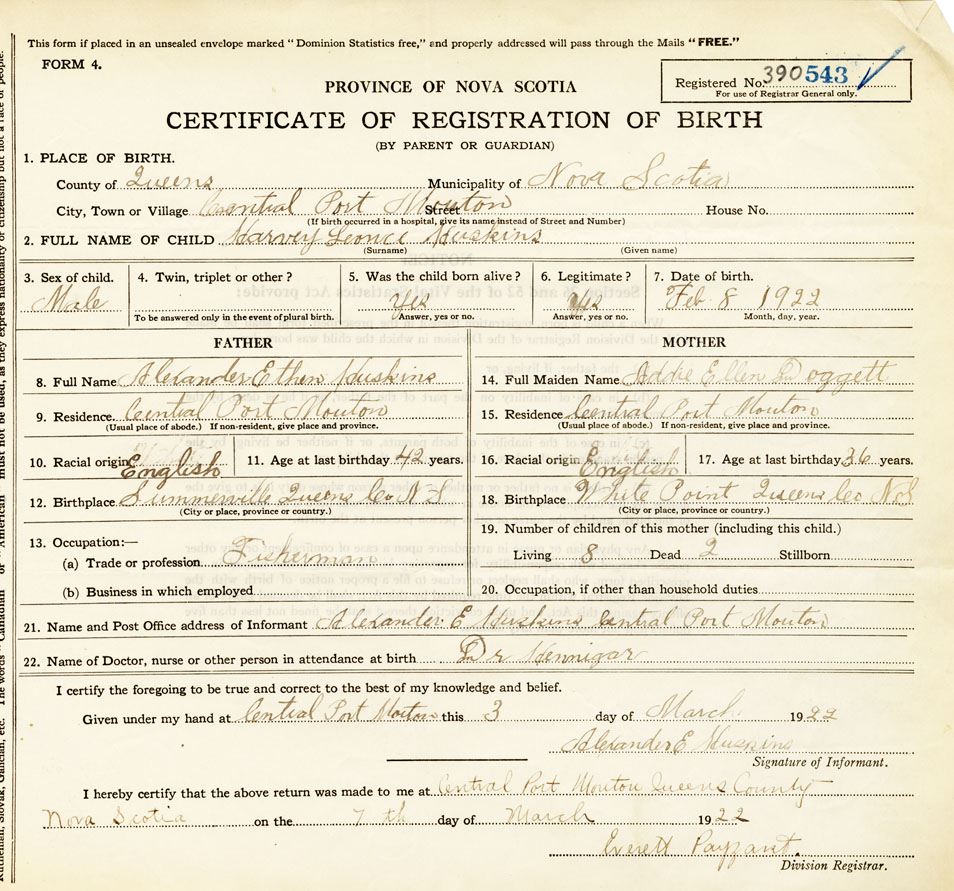 This form if placed in an unsealed envelope marked "Dominion Statistics free," and properly addressed will pass through the Mails "FREE."
FORM 4.
PROVINCE OF NOVA SCOTIA
Registered No. 390 543
For use of Registrar General only.
CERTIFICATE OF REGISTRATION OF BIRTH
(BY PARENT OR GUARDIAN)
1. PLACE OF BIRTH.
County of Queens Municipality of Nova Scotia
City, Town or Village Central Port Mouton Street House No.
(If birth occurred in a hospital, give its name instead of Street and Number)
2. FULL NAME OF CHILD Harvey Leonce Huskins
(Surname) (Given name)
3. Sex of child. 4. Twin, triplet or other? 5. Was the child born alive? 6. Legitimate? 7. Date of birth.
Male Yes Yes Feb 8 1922
To be answered only in the event of plural birth. Answer, yes or no. Answer, yes or no. Month, day, year.
FATHER MOTHER
8. Full Name Alexander Ethen Huskins 14. Full Maiden Name Addie Ellen Doggett
9. Residence Central Port Mouton 15. Residence Central Port Mouton
(Usual place of abode.) If non-resident, give place and province. (Usual place of abode.) If non-resident, give place and province.
10. Racial origin English 11. Age at last birthday 42 years. 16. Racial origin English 17. Age at last birthday 36 years.
12. Birthplace Summerville Queens Co N S 18. Birthplace White Point Queens Co N S
(City or place, province or country.) (City or place, province or country.)
13. Occupation:— 19. Number of children of this mother (including this child.)
(a) Trade or profession Fisherman Living 8 Dead 2 Stillborn
(b) Business in which employed 20. Occupation, if other than household duties
21. Name and Post Office address of Informant Alexander E Huskins Central Port Mouton
22. Name of Doctor, nurse or other person in attendance at birth Dr Hennigar
I certify the foregoing to be true and correct to the best of my knowledge and belief.
Given under my hand at Central Port Mouton this 3 day of March 1922
Alexander E Huskins
Signature of Informant.
I hereby certify that the above return was made to me at Central Port Mouton Queens County
Nova Scotia on the 7th day of March 1922
Everett Payzant.
Division Registrar.